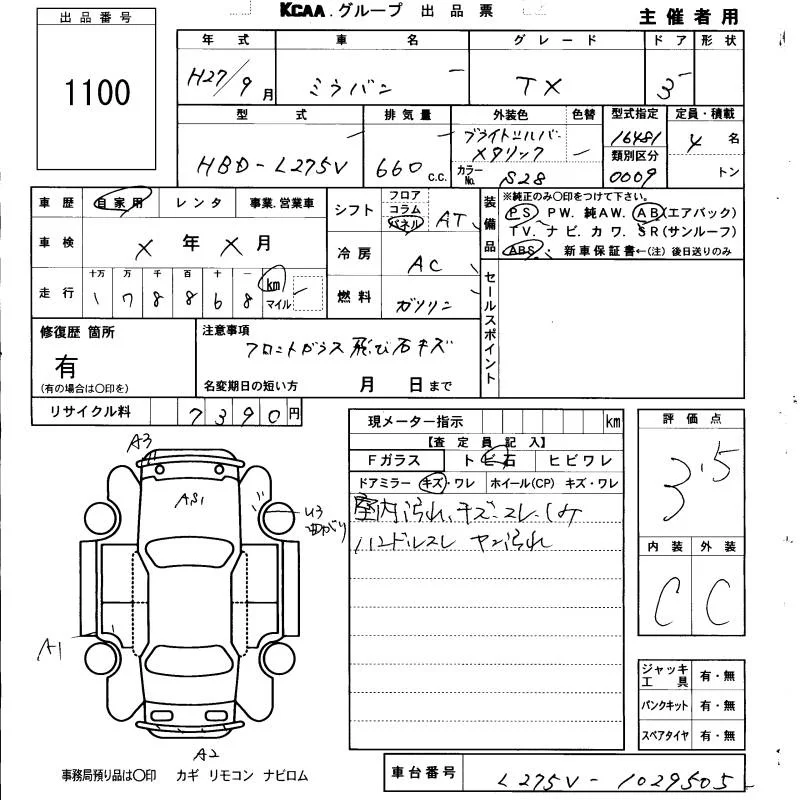 KCAA.グループ 出品票
主催者用
出品番号
1100
年式 車名 グレード ドア 形状
H27/9月 ミラバン TX 3
型式 排気量 外装色 色替 型式指定 定員・積載
HBD-L275V 660 C.C. ブライトシルバーメタリック 16481 4 名
カラーNo. S28 類別区分 0009 トン
車歴 自家用 レンタ 事業.営業車
車検 X 年 X 月
走行 十万 万 千 百 十 一 km マイル
1 7 8 8 6 8
シフト フロア コラム パネル AT
冷房 AC
燃料 ガソリン
装備品
※純正のみ○印をつけて下さい。
PS PW. 純AW. AB(エアバック)
TV. ナビ. カワ. SR(サンルーフ)
ABS ・ 新車保証書←(注) 後日送りのみ
セールスポイント
修復歴 箇所
有
(有の場合は○印を)
注意事項
フロントガラス飛び石キズ
名変期日の短い方 月 日まで
リサイクル料 7390円
現メーター指示 km
【査定員記入】
Fガラス トビ石 ヒビワレ
ドアミラー キズ・ワレ ホイール(CP) キズ・ワレ
室内汚れ、キズ、スレ、シミ
ハンドルスレ ヤニ汚れ
評価点
3.5
内装 外装
C C
A3
AS1
U3
まがり
A1
A2
ジャッキ工具 有・無
パンクキット 有・無
スペアタイヤ 有・無
事務局預り品は○印 カギ リモコン ナビロム
車台番号 L275V-1029505